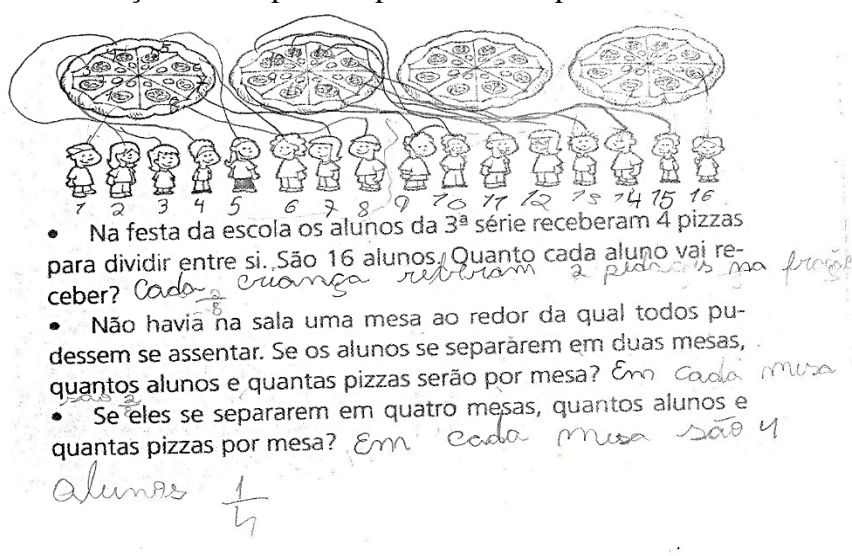 1 2 3 4 5 6 7 8 9 10 11 12 13 14 15 16
• Na festa da escola os alunos da 3ª série receberam 4 pizzas
para dividir entre si. São 16 alunos. Quanto cada aluno vai re-
ceber? Cada criança reberam 2 na fração
2/8
• Não havia na sala uma mesa ao redor da qual todos pu-
dessem se assentar. Se os alunos se separarem em duas mesas,
quantos alunos e quantas pizzas serão por mesa? Em cada mesa
são
• Se eles se separarem em quatro mesas, quantos alunos e
quantas pizzas por mesa? Em cada mesa são 4
alunos 1/4